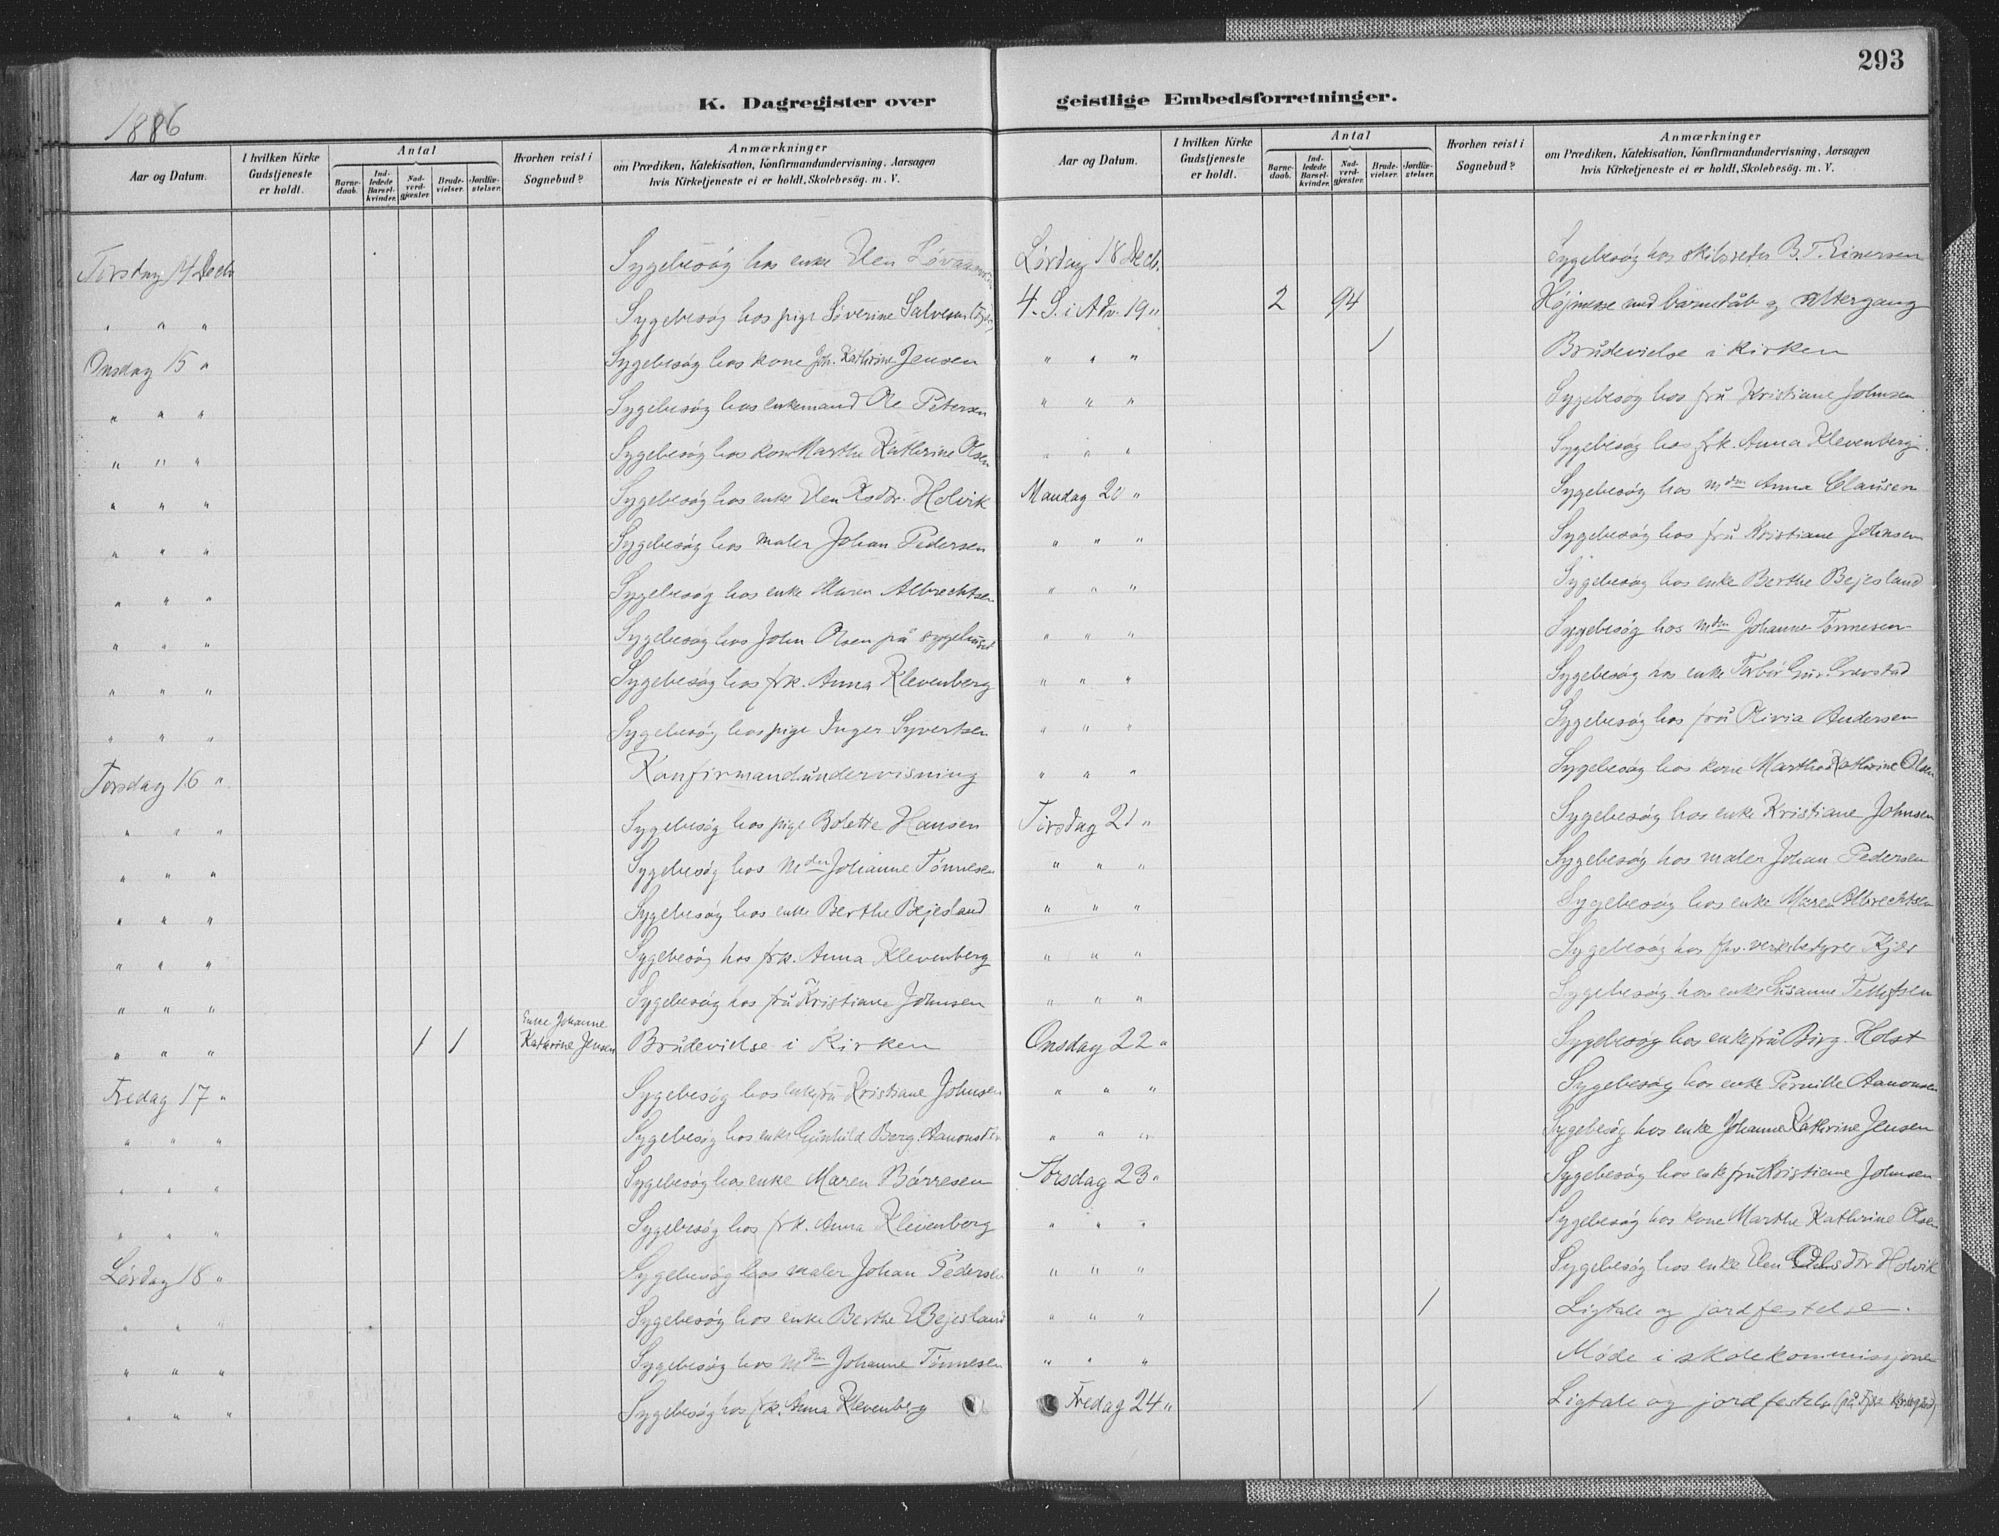 293
1886
K. Dagregister over
geistlige Embedsforretninger.
Aar og Datum.
I hvilken Kirke Gudstjeneste er holdt.
Antal
Barnedaab.
Indledede Barselkvinder.
Nadverdgjæster.
Brudevielser.
Jordfæstelser.
Hvorhen reist i Sognebud?
Anmærkninger
om Prædiken, Katekisation, Konfirmandundervisning, Aarsagen
hvis Kirketjeneste ei er holdt, Skolebesøg. m. V.
Tirsdag 14 Decb Sygebesøg hos enke Elen
" " " Sygebesøg hos pige Siverine Salvesen
Onsdag 15 " Sygebesøg hos kone Joh. Kathrine Jensen
" " " Sygebesøg hos enkemand Ole Petersen
" " " Sygebesøg hos kone Marthe Kathrine Olsen
" " " Sygebesøg hos enke Elen Holvik
" " " Sygebesøg hos maler Johan Pedersen
" " " Sygebesøg hos enke Maren Albrechtsen
" " " Sygebesøg hos John Olsen på sygehuset
" " " Sygebesøg hos frk. Anna Klevenberg
" " " Sygebesøg hos pige Inger Syvertsen
Torsdag 16 " Konfirmandundervisning
" " " Sygebesøg hos pige Bolette Hansen
" " " Sygebesøg hos Mdm Johanne Tønnesen
" " " Sygebesøg hos enke Berthe Bejesland
" " " Sygebesøg hos frk. Anna Klevenberg
" " " Sygebesøg hos fru Kristiane Johnsen
" " " 1 1 Enke Johanne Kathrine Jensen Brudevielse i Kirken
Fredag 17 " Sygebesøg hos enkefru Kristiane Johnsen
" " " Sygebesøg hos enke Gunhild Berg. Aanonsdtr
" " " Sygebesøg hos enke Maren Børresen
" " " Sygebesøg hos frk. Anna Klevenberg
Lørdag 18 " Sygebesøg hos maler Johan Pedersen
" " " Sygebesøg hos enke Berthe Bejesland
" " " Sygebesøg hos Mdm Johanne Tønnesen
" " " Sygebesøg hos frk. Anna Klevenberg
Aar og Datum.
I hvilken Kirke Gudstjeneste er holdt.
Antal
Barnedaab.
Indledede Barselkvinder.
Nadverdgjæster.
Brudevielser.
Jordfæstelser.
Hvorhen reist i Sognebud?
Anmærkninger
om Prædiken, Katekisation, Konfirmandundervisning, Aarsagen
hvis Kirketjeneste ei er holdt, Skolebesøg. m. V.
Lørdag 18 Decb. Sygebesøg hos skibsreder B. T. Einersen
4. S. i Adv. 19 " 2 94 Højmesse med barnedåb og altergang
" " " 1 Brudevielse i kirken
" " " Sygebesøg hos fru Kristiane Johnsen
" " " Sygebesøg hos frk. Anna Klevenberg.
Mandag 20 " Sygebesøg hos Mdm Anna Clausen
" " " Sygebesøg hos fru Kristiane Johnsen
" " " Sygebesøg hos enke Berthe Bejesland
" " " Sygebesøg hos Mdm Johanne Tønnesen
" " " Sygebesøg hos enke
" " " Sygebesøg hos fru Olivia Andersen
" " " Sygebesøg hos kone Marthe Kathrine Olsen
Tirsdag 21 " Sygebesøg hos enke Kristiane Johnsen
" " " Sygebesøg hos maler Johan Pedersen
" " " Sygebesøg hos enke Maren Albrechtsen
" " " Sygebesøg hos fhv. verksbestyrer Kjær
" " " Sygebesøg hos enke Susanne Tellefsen
Onsdag 22 " Sygebesøg hos enkefru Birg. Holst
" " " Sygebesøg hos enke Pernille Aanonsen
" " " Sygebesøg hos enke Johanne Kathrine Jensen
Torsdag 23 " Sygebesøg hos enkefru Kristiane Johnsen
" " " Sygebesøg hos kone Marthe Kathrine Olsen
" " " Sygebesøg hos enke Elen Olsdtr Holvik
" " " 1 Ligtale og jordfestelse.
" " " Møde i skolekommissjonen
Fredag 24 " 1 Ligtale og jordfestelse